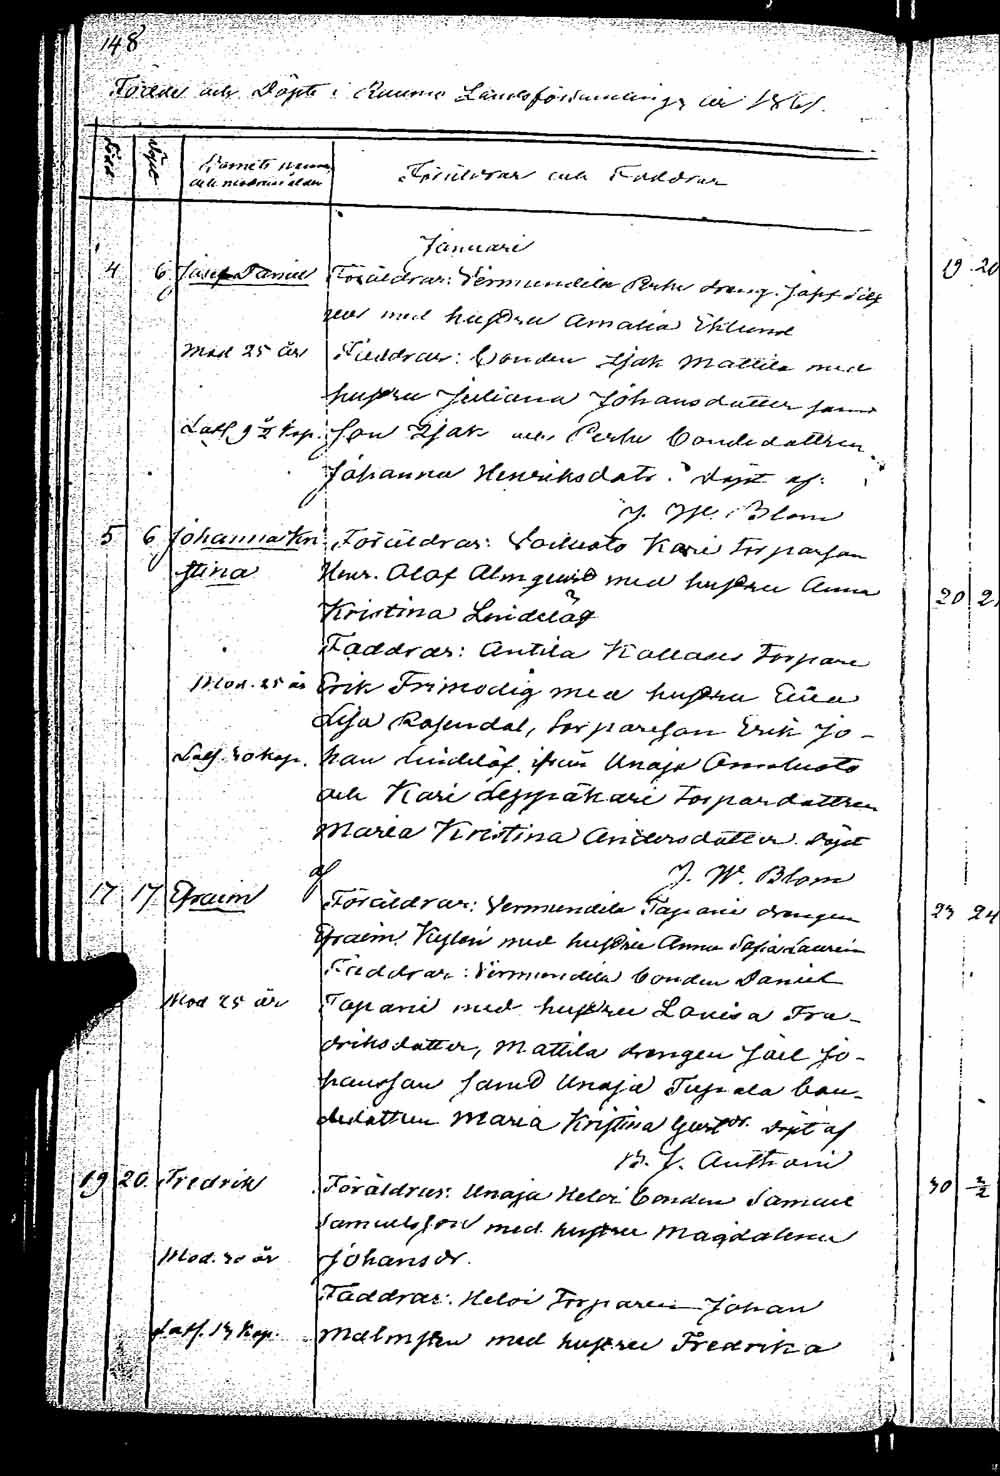 148
Födde och Döpte i Raumo Landsförsamling år 1861.
Född
Döpt
Barnets namn
och modrens ålder
Föräldrar och Faddrar
Januari
4 6 Josef Daniel Föräldrar: Vermundila Perhe dreng. Josef
med hustru Amalia Eklund
Mod 25 år Faddrar: Bonden Isak Mattila med
hustru Juliana Johansdatter samt
Lass. 9 ½ Kop. Son Isak och Perhe Bondedottren
Johanna Henriksdotr. Döpt af:
J. W. Blom
5 6 Johanna Kri Föräldrar: Kari Torparson
stina Henr. Olof Almqvist med hustru Anna
Kristina Lindelöf
Faddrar: Antila Kallases Torpare
Mod. 25 år Erik Frimodig med hustru Eva
Lisa Rosendal, torpareson Erik Jo-
Lass. 30 Kop. han Lindelöf ifrån Unaja
och Kari Leppäkari Torpardottren
Maria Kristina Andersdotter. Döpt
af J. W. Blom
17 17 Efraim Föräldrar: Vermundila Tapani drengen
Efraim med hustru Anna Sofia Laurén
Faddrar: Vermundila bonden Daniel
Mod 25 år Tapani med hustru Lovisa Fre-
driksdotter, Mattila drengen Joel Jo-
hansson samt Unaja Tupala bon-
dedottren Maria Kristina Gustdr. Döpt af
B. J. Anthoni
19 20 Fredrik Föräldrar: Unaja Heloi bonden Samuel
Samuelsson med hustru Magdalena
Mod. 30 år Johansdr.
Faddrar: Heloi Torparen Johan
Lass. 13 Kop. Malmsten med hustru Fredrika
19 20
20 21
23 24
30 2/2